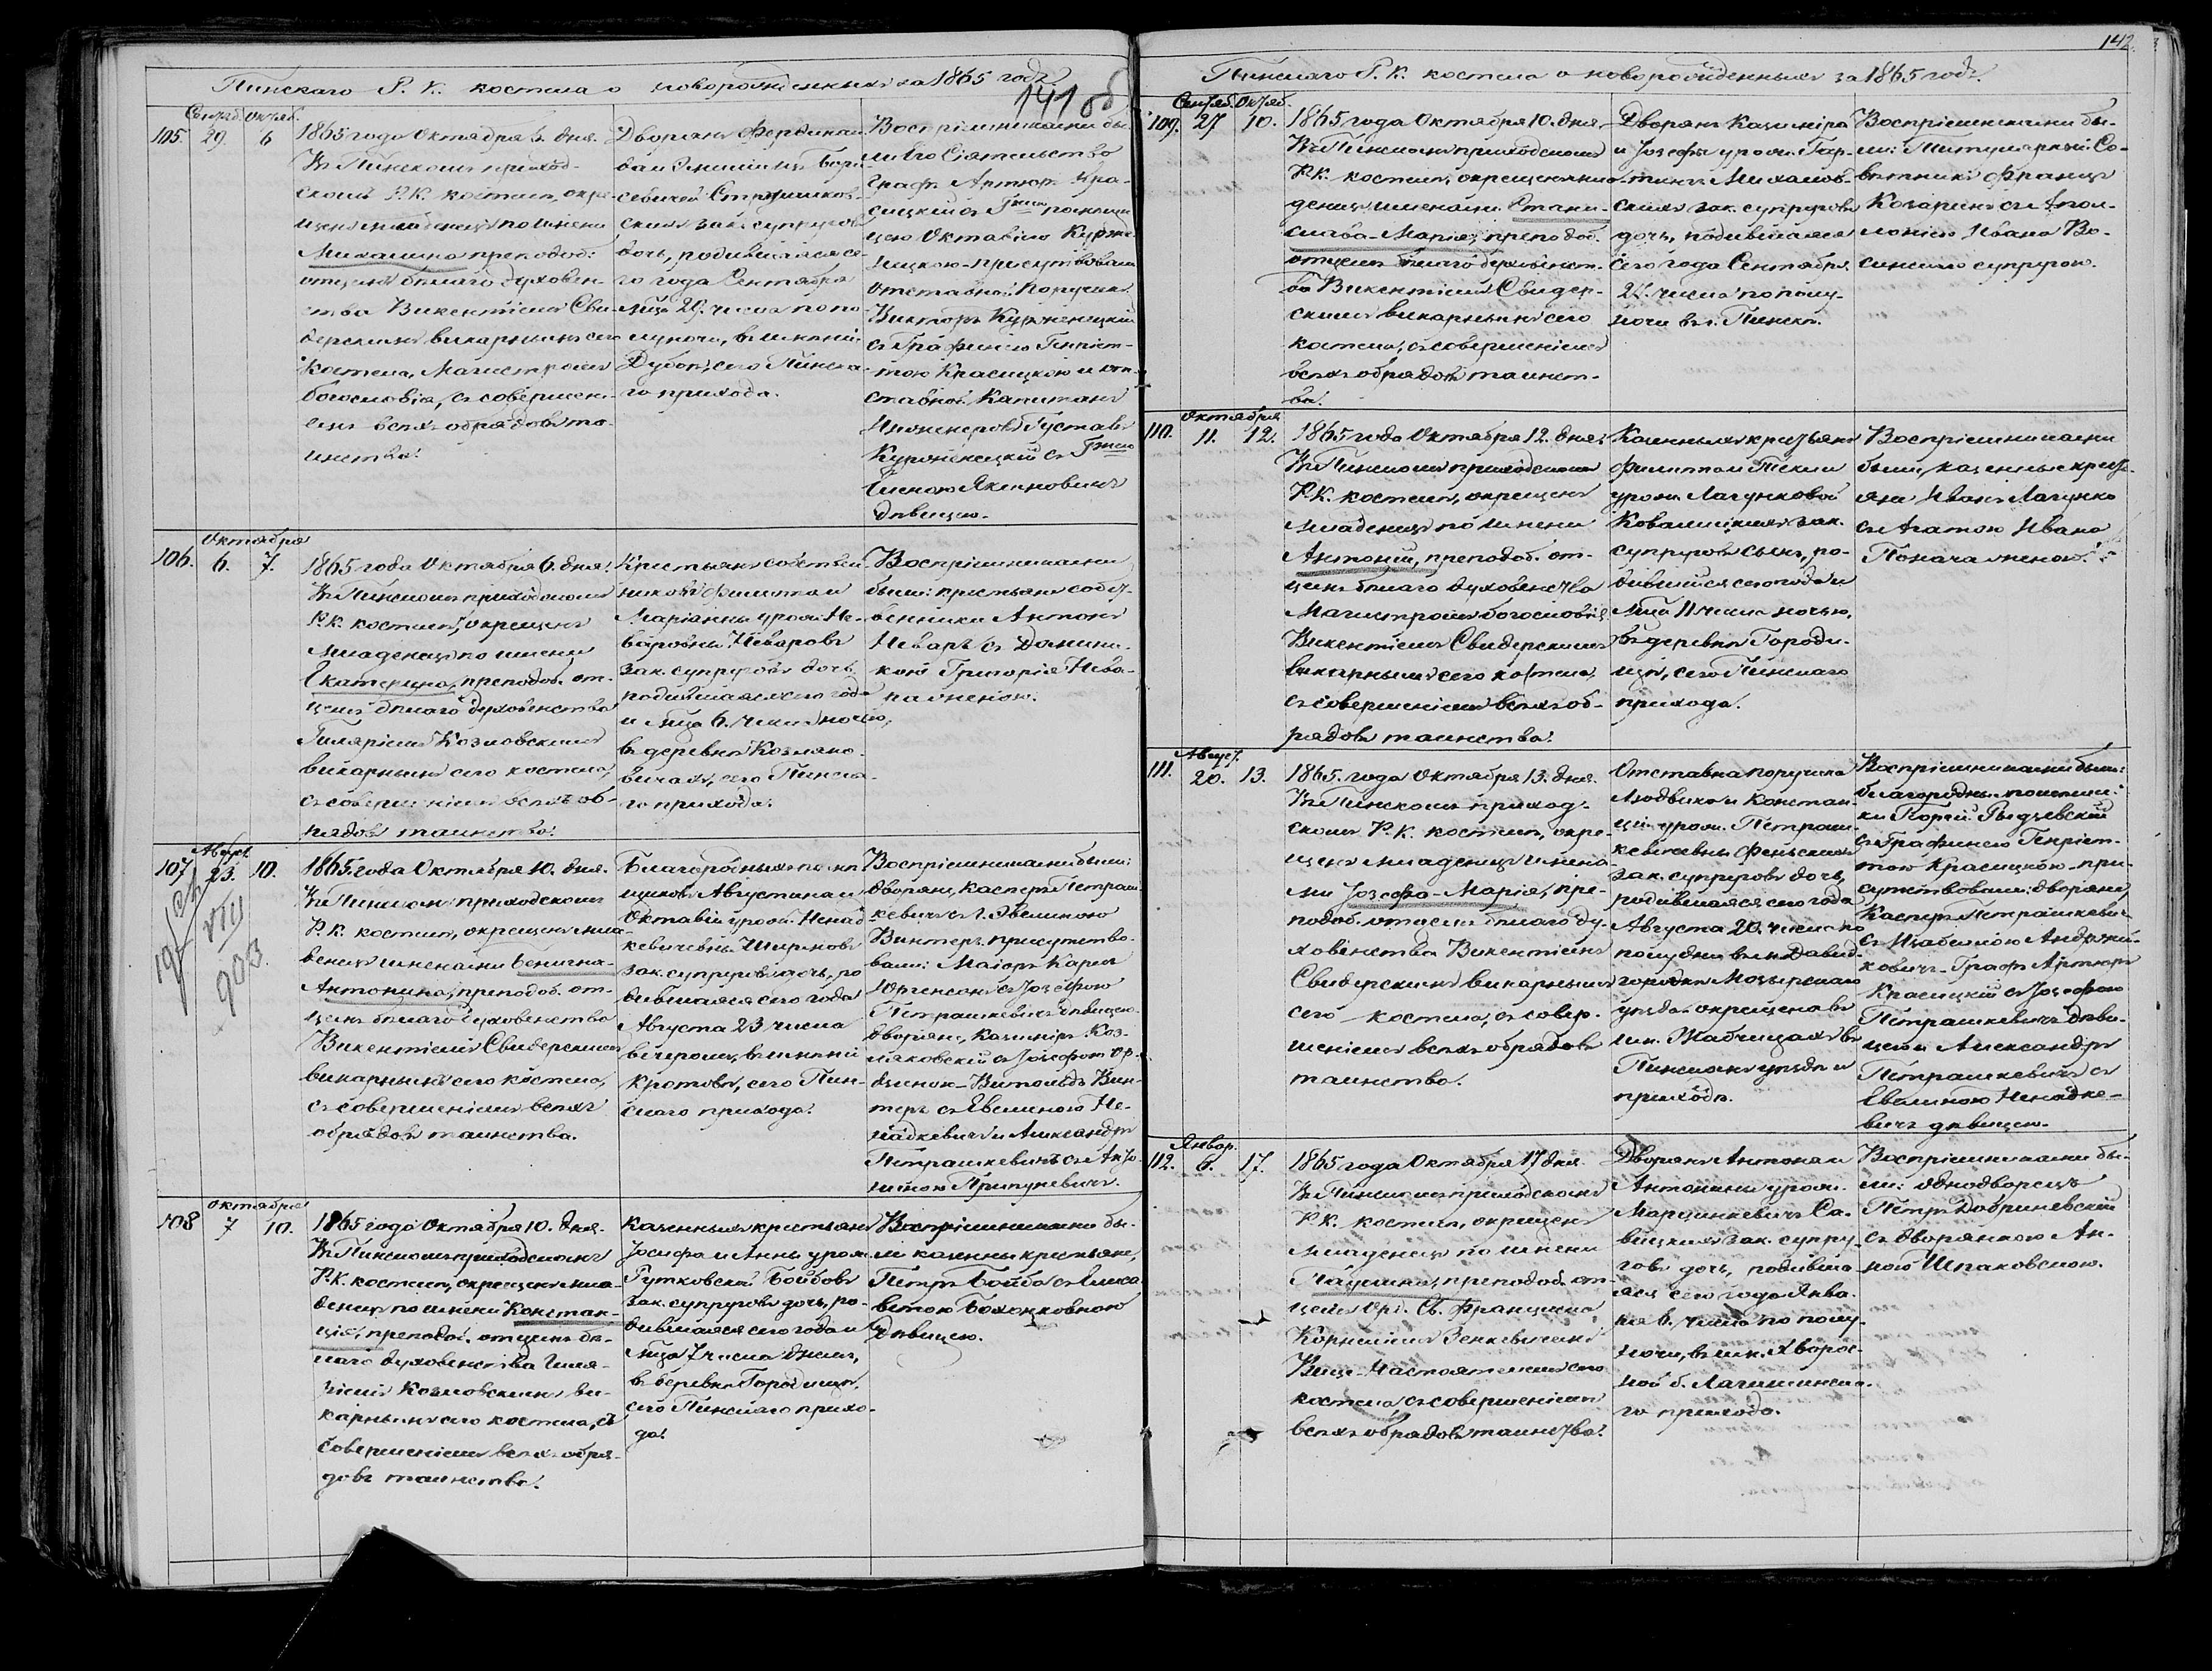 Пинскаго Р. К. костела о новорожденныхъ за 1865 годъ
141 об
Сентяб. Октяб.
105. 29. 6
1865 года Октября 6. дня.
Въ Пинскомъ приход-
скомъ Р. К. костелѣ, окре-
щенъ младенецъ по имени
Михалина, преподоб:
отцемъ бѣлаго духовен-
ства Викентіемъ Сви-
дерскимъ викарнымъ сего
костела, Магистромъ
богословія, съ совершені-
емъ всѣхъ обрядовъ та-
инства.
Дворянъ Фердинан-
да и Эмиліи
зак. супруговъ
дочь, родившаяся се-
го года Сентября
мѣс 29. числа по по-
луночи, въ имѣніи
Дубой, сего Пинска-
го прихода.
Воспріемниками бы-
ли Его Сіятельство
Графъ Артюръ Кра-
сицкій съ
Октавіею Курже-
нецкою - присутствовали
отставной Поручикъ
Викторъ Курженецкій
съ Графинею Генріет-
тою Красицкою и от-
ставной Капитанъ
Инженеровъ Густавъ
Курженецкій съ
дѣвицею.
Октября
106. 6. 7.
1865 года Октября 6. дня.
Въ Пинскомъ приходскомъ
Р. К. костелѣ, окрещенъ
младенецъ по имени
Екатерина, преподоб. от-
цемъ бѣлаго духовенства
Гиляріемъ Козловскимъ
викарнымъ сего костела,
съ совершеніемъ всѣхъ об-
рядовъ таинства.
Крестьянъ собствен-
никовъ Филиппа и
Маріанны урож. Не-
варовны Неваровъ
зак. супруговъ дочь,
родившаяся сего года
и мѣца 6. числа ночью,
въ деревнѣ Козляко-
вичахъ, сего Пинска-
го прихода.
Воспріемниками
были: крестьяне собст-
венники Антонъ
Неваръ съ Домини-
кою Григорія Нева-
ра женою.
Август.
107. 23. 10.
19/VIII 903
1865 года Октября 10. дня.
Въ Пинскомъ приходскомъ
Р. К. костелѣ, окрещенъ мла-
денецъ именами Бенигна-
Антонина, преподоб. от-
цемъ бѣлаго духовенства
Викентіемъ Свидерскимъ
викарнымъ сего костела,
съ совершеніемъ всѣхъ
обрядовъ таинства.
Благородныхъ помѣ-
щиковъ Августина и
Октавіи урож. Ненад-
кевичевны Ширмовъ
зак. супруговъ дочь, ро-
дившаяся сего года
Августа 23 числа
вечеромъ, въ имѣніи
Кротовѣ, сего Пин-
скаго прихода.
Воспріемниками были:
дворяне, Касперъ Петраш-
кевичъ съ Эвелиною
Винтеръ, присутство-
вали: Маіоръ Карлъ
Юргенсонъ съ Іозефою
Петрашкевичъ дѣвицею.
дворяне, Казиміръ Коз-
ляковскій съ Іозефою Ор-
Витольдъ Вин-
теръ съ Евелиною Не-
надкевичъ и Александръ
Петрашкевичъ съ Анто-
ниною
Октября
108 7 10.
1865 года Октября 10. дня.
Въ Пинскомъ приходскомъ
Р. К. костелѣ, окрещенъ мла-
денецъ по имени Констан-
ція, преподоб. отцемъ бѣ-
лаго духовенства Гиля-
ріемъ Козловскимъ ви-
карнымъ сего костела, съ
совершеніемъ всѣхъ обря-
довъ таинства.
Казенныхъ крестьянъ
Іосифа и Анны урож.
Рутковской Бойбовъ
зак. супруговъ дочь, ро-
дившаяся сего года и
мѣца 7 числа днемъ,
въ деревнѣ Городищѣ,
сего Пинскаго прихо-
да.
Воспріемниками бы-
ли казенны крестьяне,
Петръ Бойба съ Елиса-
ветою
дѣвицею.
142.
Пинскаго Р. К. костела о новорожденныхъ за 1865 годъ.
Сентяб. Октяб.
109. 27 10.
1865 года Октября 10. дня.
Въ Пинскомъ приходскомъ
Р. К. костелѣ, окрещенъ мла-
денецъ именами Стани-
слава-Марія, преподоб.
отцемъ бѣлаго духовенст-
ва Викентіемъ Свидер-
скимъ викарнымъ сего
костела, съ совершеніемъ
всѣхъ обрядовъ таинст-
ва.
Дворянъ Казиміра
и Іозефы урож. Гар-
Михалов-
скихъ зак. супруговъ
дочь, родившаяся
сего года Сентября
27. числа по полу-
ночи въ г. Пинскѣ.
Воспріемниками бы-
ли: Титулярный Со-
вѣтникъ Францъ
Козаринъ съ Апол-
лоніею Ивана Во-
супругою.
Октября
110. 11. 12.
1865 года Октября 12. дня.
Въ Пинскомъ приходскомъ
Р. К. костелѣ, окрещенъ
младенецъ по имени
Антоній, преподоб. от-
цемъ бѣлаго духовенства
Магистромъ богословія
Викентіемъ Свидерскимъ
викарнымъ сего костела,
съ совершеніемъ всѣхъ об-
рядовъ таинства.
Казенныхъ крестьянъ
Филиппа и Теклы
урож. Лагунковой
Ковалицкихъ зак.
супруговъ сынъ, ро-
дившійся сего года и
мѣца 11 числа ночью,
въ деревнѣ Городи-
щѣ, сего Пинскаго
прихода.
Воспріемниками
были, казенные кресть-
яне Иванъ Лагунко
съ Агатою Ивана
женою.
Август.
111. 20. 13.
1865. года Октября 13. дня.
Въ Пинскомъ приход-
скомъ Р. К. костелѣ, окре-
щенъ младенецъ имена-
ми Іозефа-Марія, пре-
подоб. отцемъ бѣлаго ду-
ховенства Викентіемъ
Свидерскимъ викарнымъ
сего костела, съ совер-
шеніемъ всѣхъ обрядовъ
таинства.
Отставна поручика
Людвика и Констан-
ціи урож. Петраш-
кевичевны
зак. супруговъ дочь,
родившаяся сего года
Августа 20. числа по
полудни въ м. Давид-
городкѣ Мозырскаго
уѣзда. окрещена въ
им. Жабчицахъ въ
Пинскомъ уѣздѣ и
приходѣ.
Воспріемниками были:
благородны помѣщи-
ки
съ Графинею Генріет-
тою Красицкою - при-
сутствовали: дворяне,
Касперъ Петрашкевичъ
съ Изабеллою Андржей-
ковичъ - Графъ Артюръ
Красицкій съ Іозефою
Петрашкевичъ дѣви-
цею и Александръ
Петрашкевичъ съ
Евелиною Ненадке-
вичъ дѣвицею.
Январ.
112. 6. 17.
1865 года Октября 17 дня.
Въ Пинскомъ приходскомъ
Р. К. костелѣ, окрещенъ
младенецъ по имени
Паулина, преподоб. от-
цемъ Орд. Св. Франциска
Корниліемъ Зенкевичемъ
Вице-Настоятелемъ сего
костела, съ совершеніемъ
всѣхъ обрядовъ таинства.
Дворянъ Антона и
Антонины урож.
Марцинкевичъ Са-
вицкихъ зак. супру-
говъ дочь, родивша-
яся сего года Янва-
ря 6. числа по полу-
ночи, въ им. Хворос-
ной б. Логишинска-
го прихода.
Воспріемниками бы-
ли: однодворецъ
Петръ Добриневскій
съ дворянкою Ан-
ною Шпаковскою.